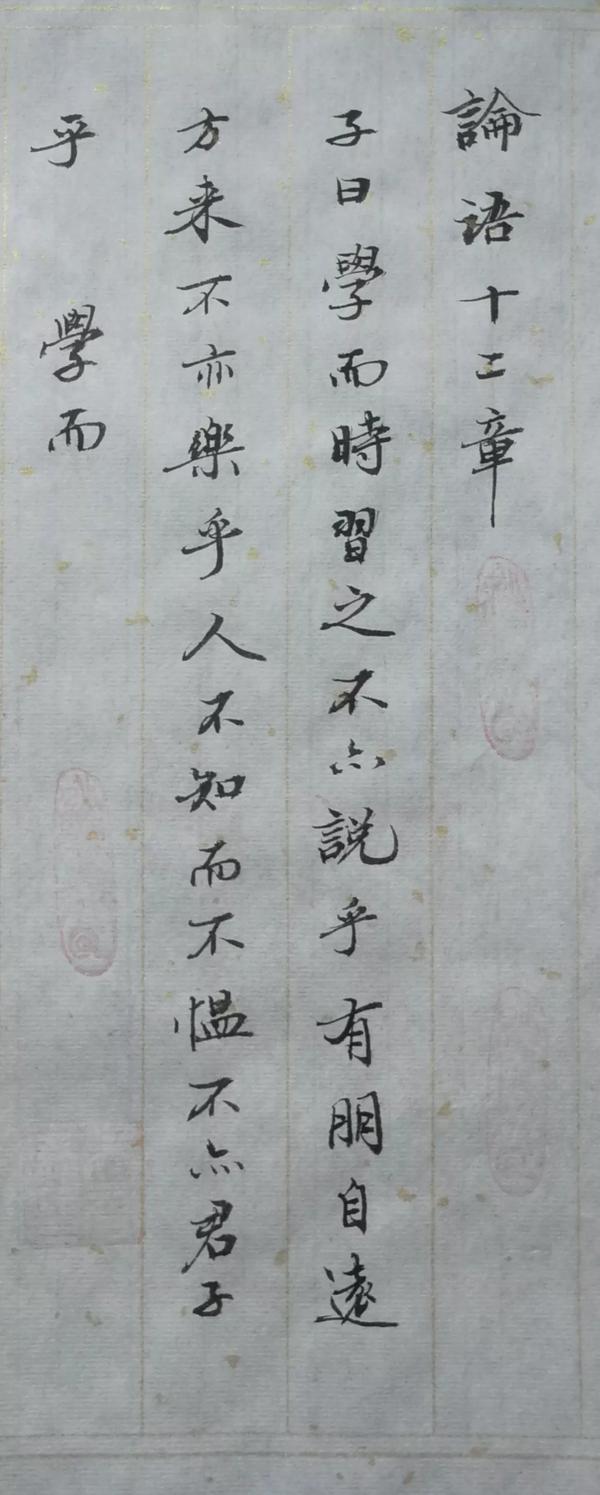 論語十二章
子曰學而時習之不亦說乎有朋自遠
方来不亦樂乎人不知而不愠不亦君子
乎 學而